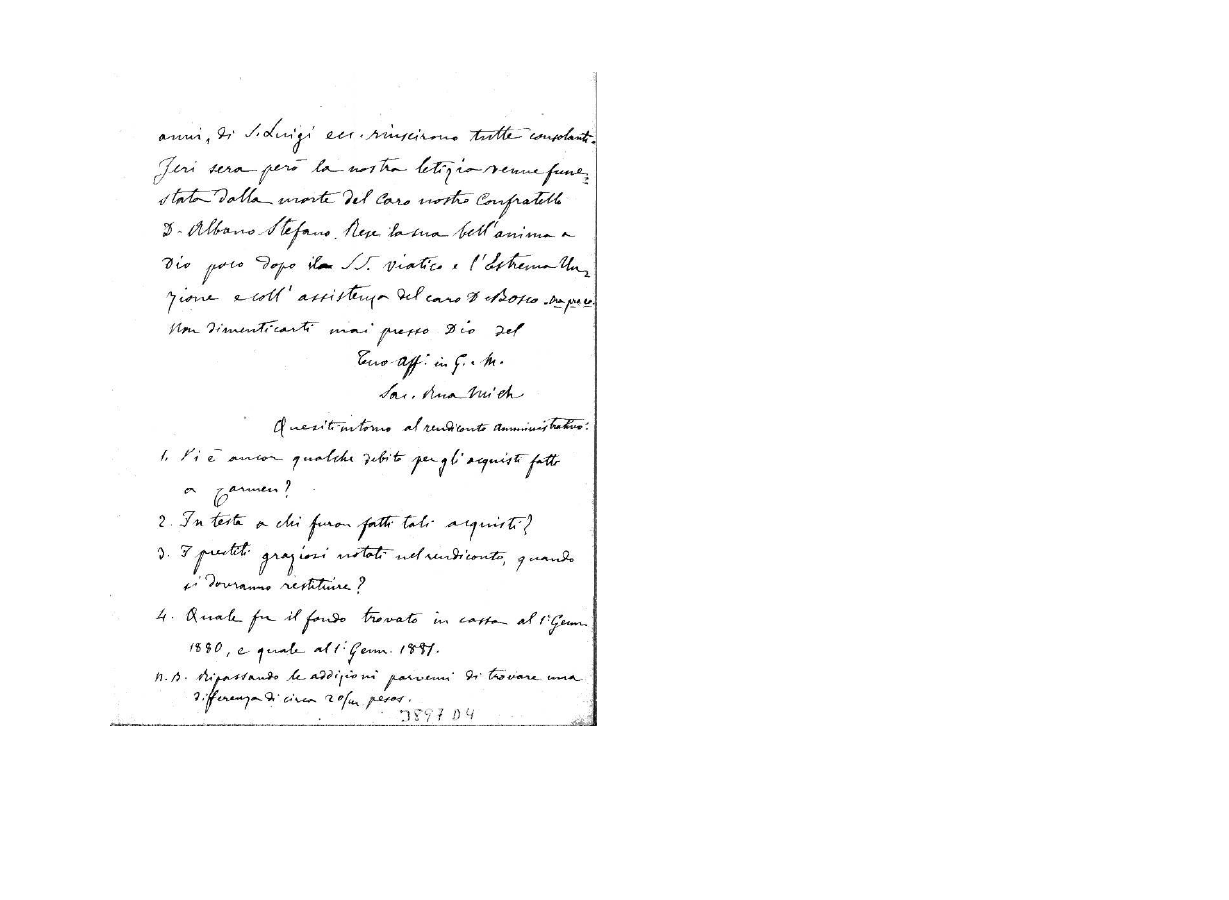 anni, di S. Luigi ecc. riuscirono tutte consolanti.
Jeri sera però la nostra letizia venne fune=
stata dalla morte del caro nostro Confratello
D. Albano Stefano. Rese la sua bell'anima a
Dio poco dopo il SS. Viatico e l'Estrema Un=
zione e coll'assistenza del caro D. Bosco.
Non dimenticarti mai presso Dio del
Tuo Aff. in G. e M.
Sac. Rua Mich
Quesiti intorno al rendiconto amministrativo:
1. Vi è ancor qualche debito per gli acquisti fatti
a Carmen?
2. In testa a chi furon fatti tali acquisti?
3. I prestiti graziosi notati nel rendiconto, quando
si dovranno restituire?
4. Quale fu il fondo trovato in cassa al 1° Genn.
1880, e quale al 1° Genn. 1881.
N.B. Ripassando le addizioni parvemi di trovare una
differenza di circa 20/m pesos.
3897 D4